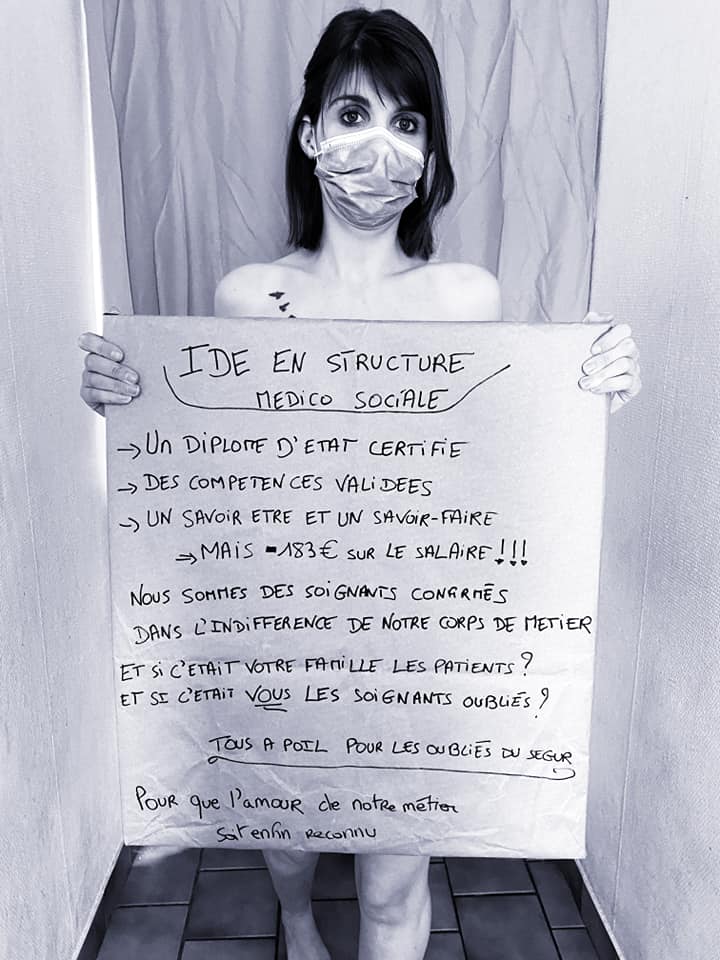 IDE EN STRUCTURE
MEDICO SOCIALE
→ UN DIPLOME D'ETAT CERTIFIE
→ DES COMPETENCES VALIDEES
→ UN SAVOIR ETRE ET UN SAVOIR-FAIRE
→ MAIS -183€ SUR LE SALAIRE!!!
NOUS SOMMES DES SOIGNANTS CONFIRMÉS
DANS L'INDIFFERENCE DE NOTRE CORPS DE METIER
ET SI C'ETAIT VOTRE FAMILLE LES PATIENTS?
ET SI C'ETAIT VOUS LES SOIGNANTS OUBLIÉS?
TOUS A POIL POUR LES OUBLIÉS DU SEGUR
POUR que l'amour de notre métier
soit enfin reconnu